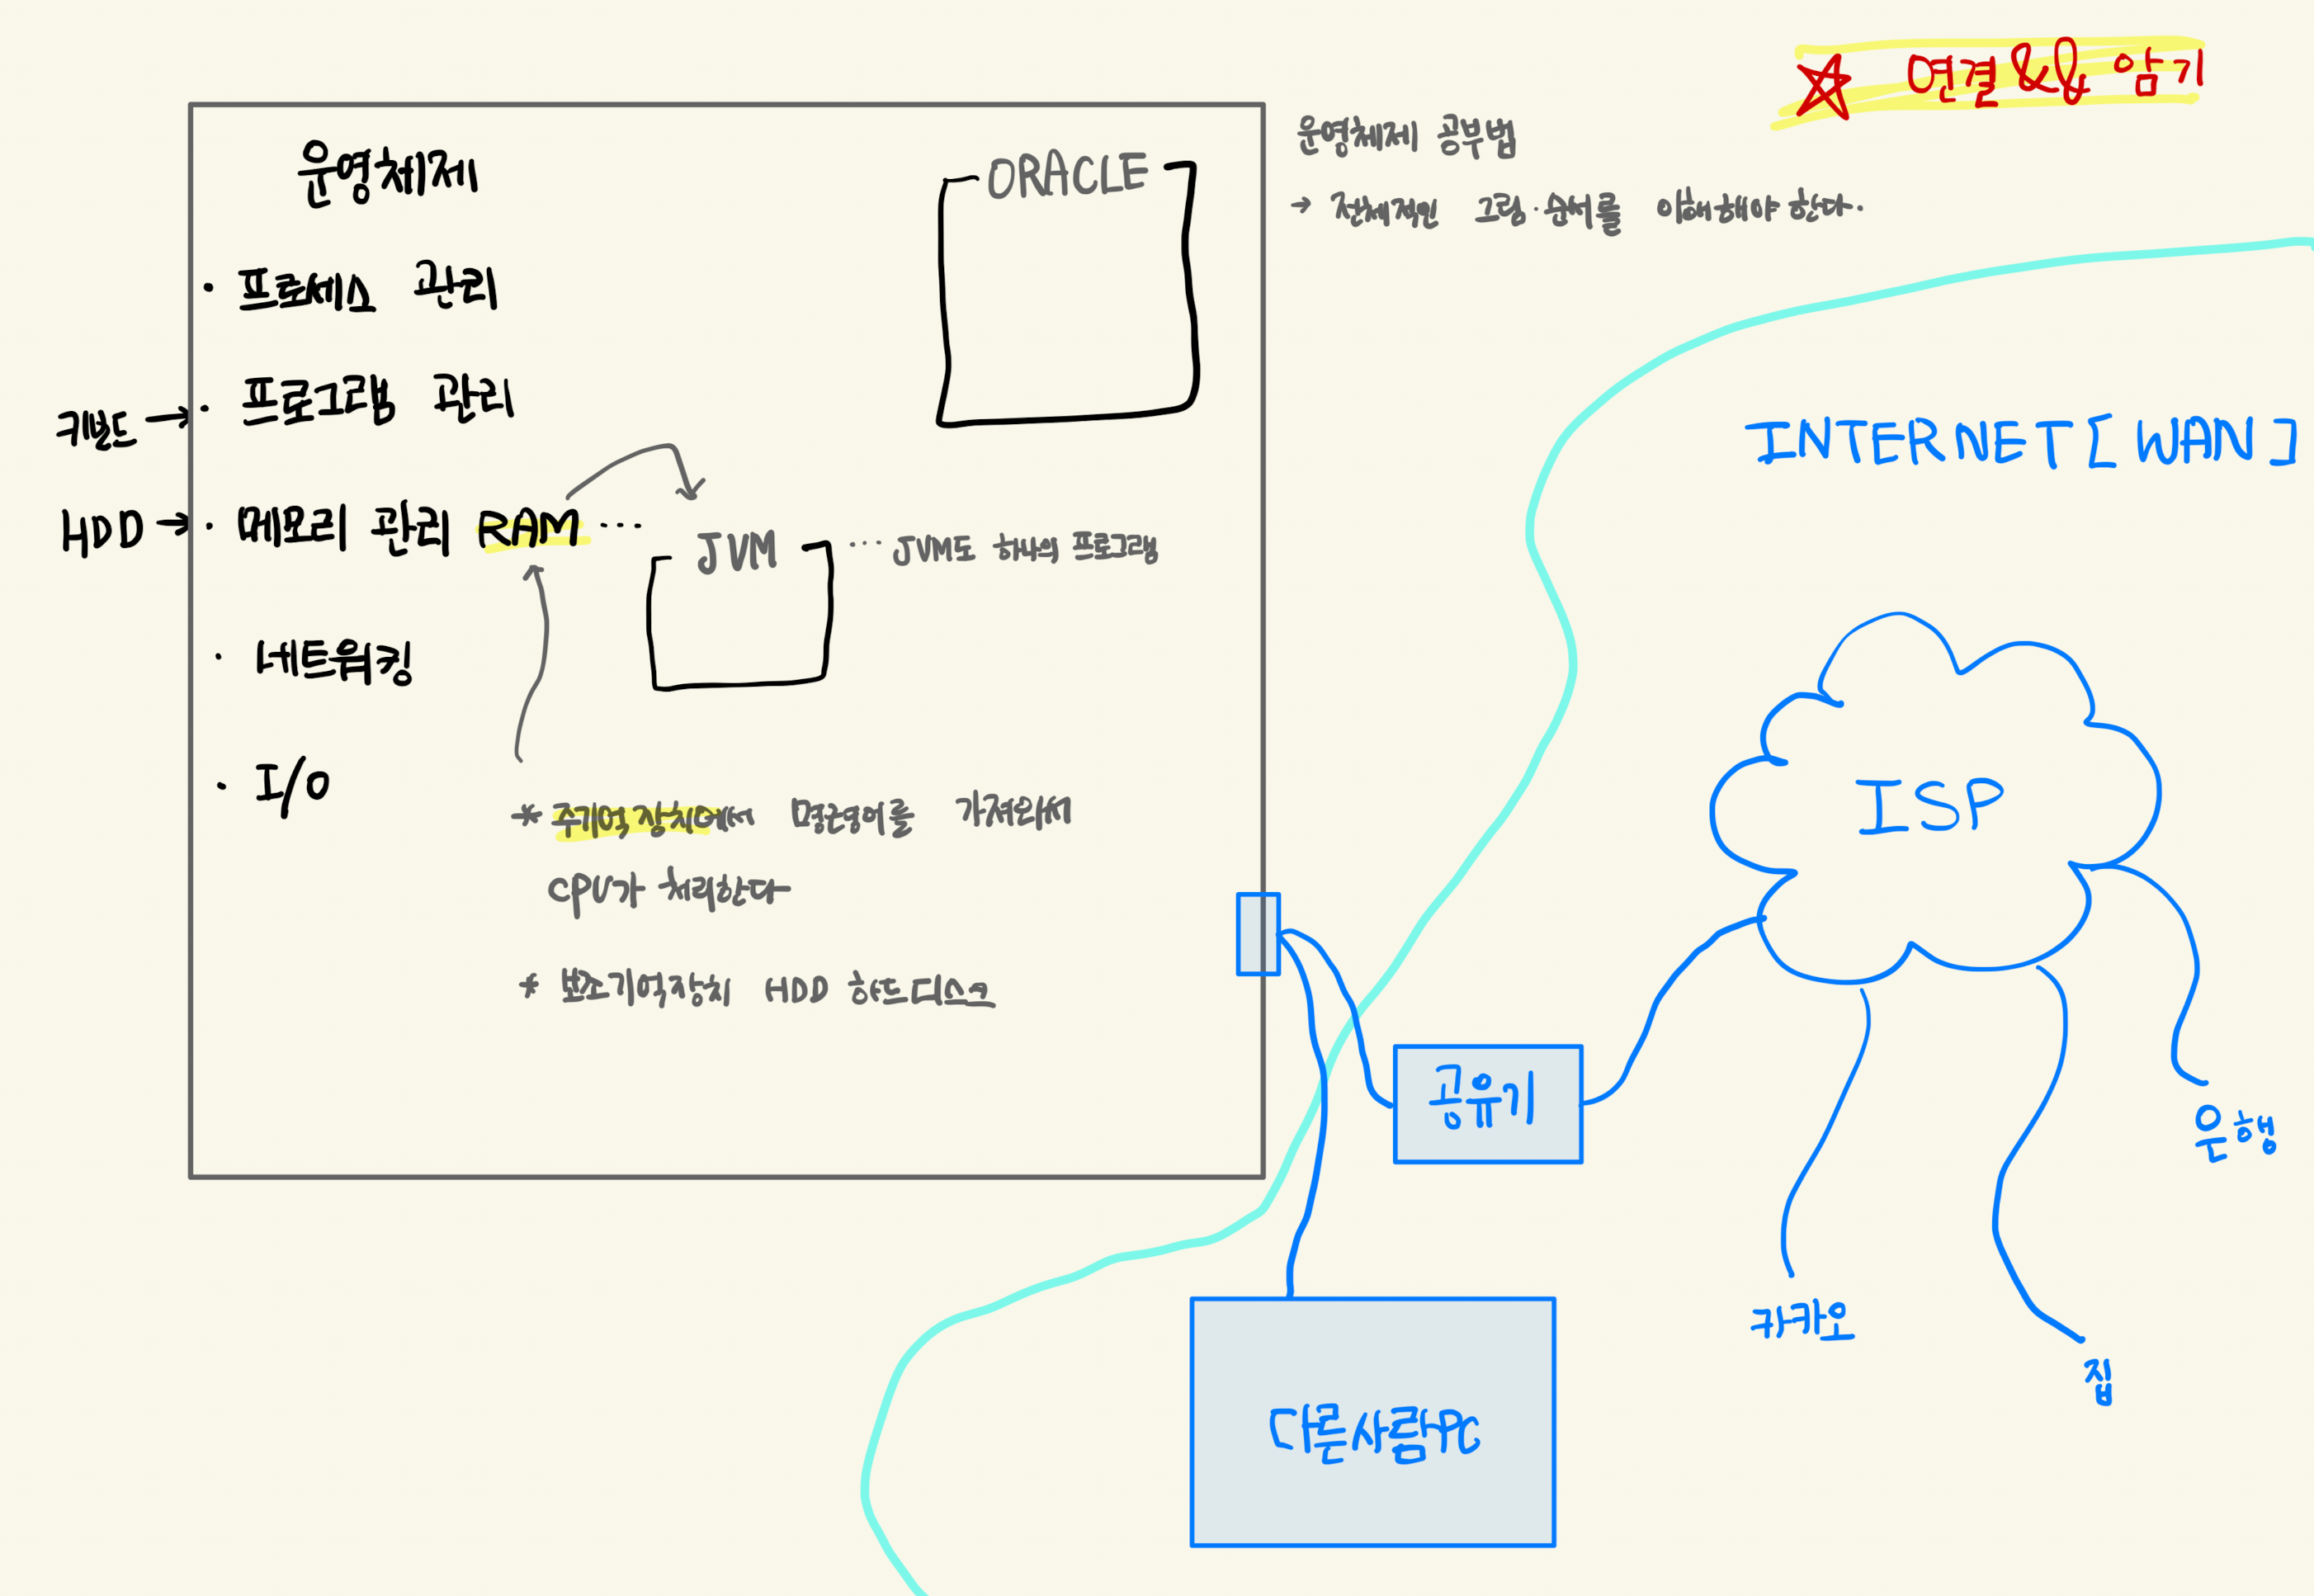 ☆ 연결 && 암기
운영체제 공부법
→ 전체적인 그림·순서를 이해해야 한다.
운영체제
ORACLE
· 프로세스 관리
· 프로그램 관리
키보드 →
HDD →
· 메모리 관리 RAM ...
JVM
... JVM도 하나의 프로그램
· 네트워킹
· I/O
* 주기억장치에서 명령어를 가져와서
CPU가 처리한다
* 보조기억장치 HDD 하드디스크
INTERNET [WAN]
ISP
공유기
은행
카카오
집
다른사람PC